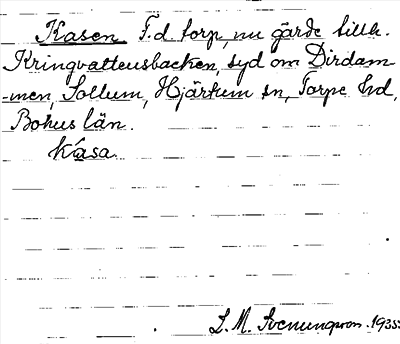 Kasen F.d. torp, nu gärde tillh.
Kringvattensbacken, syd om Dirdam-
men, Sollum, Hjärtum sn, Torpe hd,
Bohus län.
Kása
S. M. Svenungson. 1935.